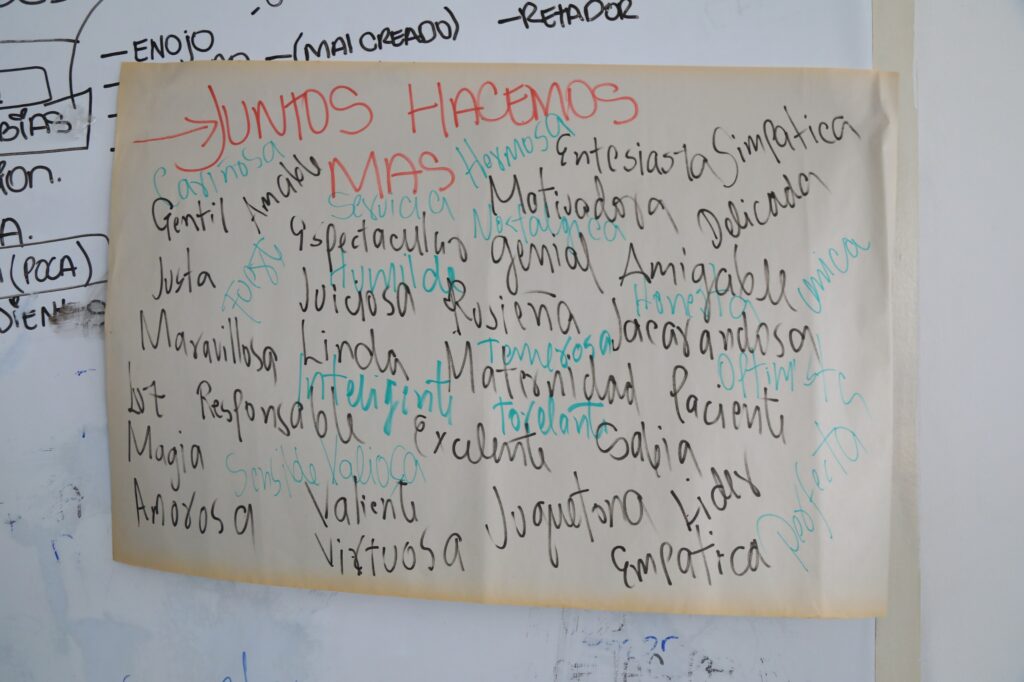 - ENOJO
- (MAL CREADO)
- RETADOR
BIAS
ION.
A.
(POCA)
DIEN
→ JUNTOS HACEMOS
MAS
Carinosa
Hermosa
Entesiasta Simpatica
Gentil Amable
Servicia
Motivadora
Delicada
Espectacular
Nostalgica
Justa
Fuerte
Humilde
genial
Amigable
unica
Juiciosa
Rosieña
Honesta
Jacarandosa
Maravillosa
Linda
Temerosa
Maternidad
Optimista
Luz Responsable
Inteligente
torelante
Paciente
Magia
Sensilde Valiosa
Excelente
Sabia
Amorosa
Valiente
Juguetona
Lider
perfecta
Virtuosa
Empatica